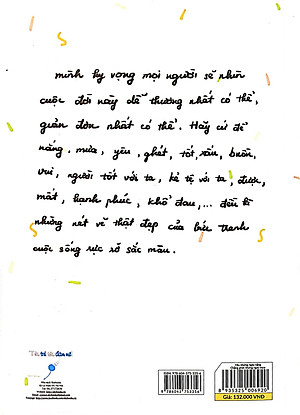 mình hy vọng mọi người sẽ nhìn
cuộc đời này dễ thương nhất có thể,
giản đơn nhất có thể. Hãy cứ để
nắng, mưa, yêu, ghét, tốt, xấu, buồn,
vui, người tốt với ta, kẻ tệ với ta, được,
mất, hạnh phúc, khổ đau,... đều là
những nét vẽ thật đẹp của bức tranh
cuộc sống rực rỡ sắc màu.
8 935325 006920
Giá: 132.000 VNĐ